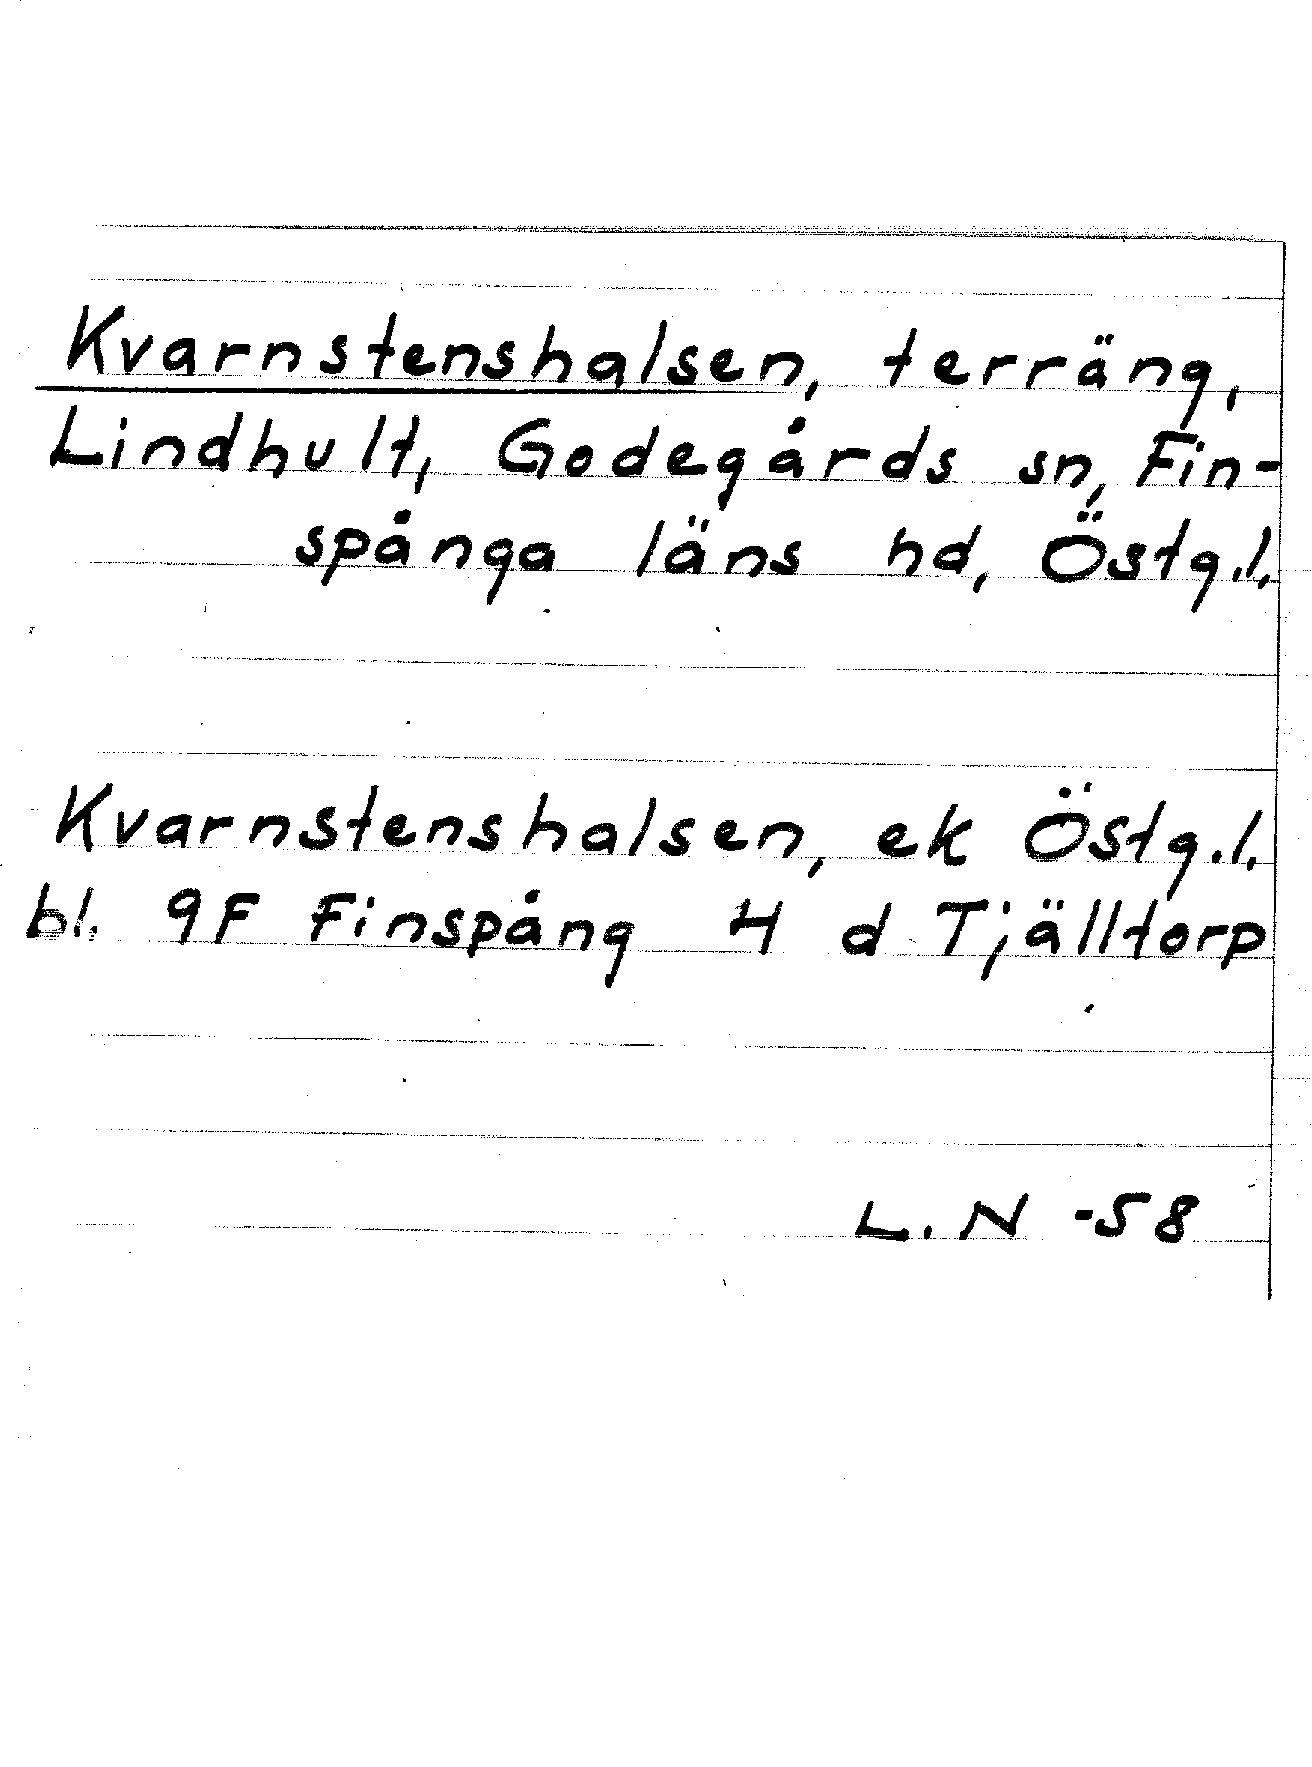 Kvarnstenshalsen, terräng,
Lindhult, Godegårds sn, Fin-
spånga läns hd, Östg.l.
Kvarnstenshalsen, ek Östg.l.
bl. 9F Finspång H d Tjälltorp
L. N -58